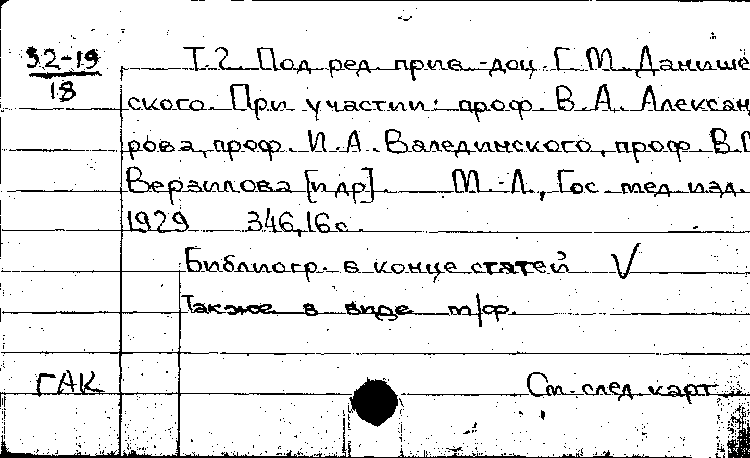 32-19
18
Т.2. Под ред. прив.-доц. Г.М. Данише
ского. При участии: проф. В.А. Алексан
рова, проф. И.А. Валединского, проф. В.
Верзилова [и др]. М.-Л., Гос. мед. изд.
1929 346,16с.
Библиогр. в конце статей √
Также в виде м/ф.
ГАК См. след. карт